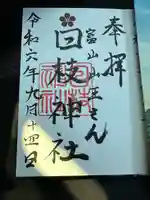 奉拝
富山山王さん
日枝神社
令和六年九月十四日